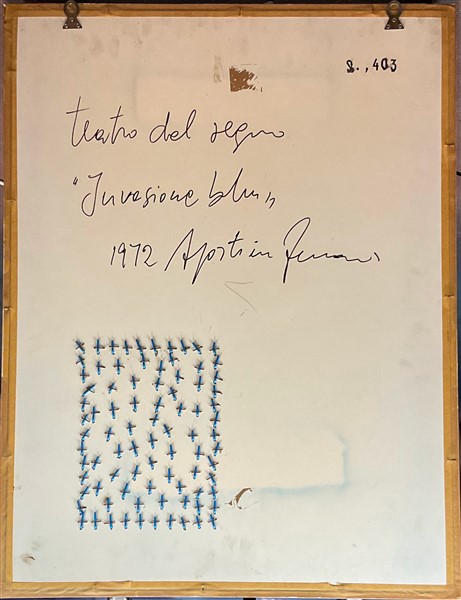 S., 403
teatro del segno
"Invasione blu"
1972 Agostino Ferrari